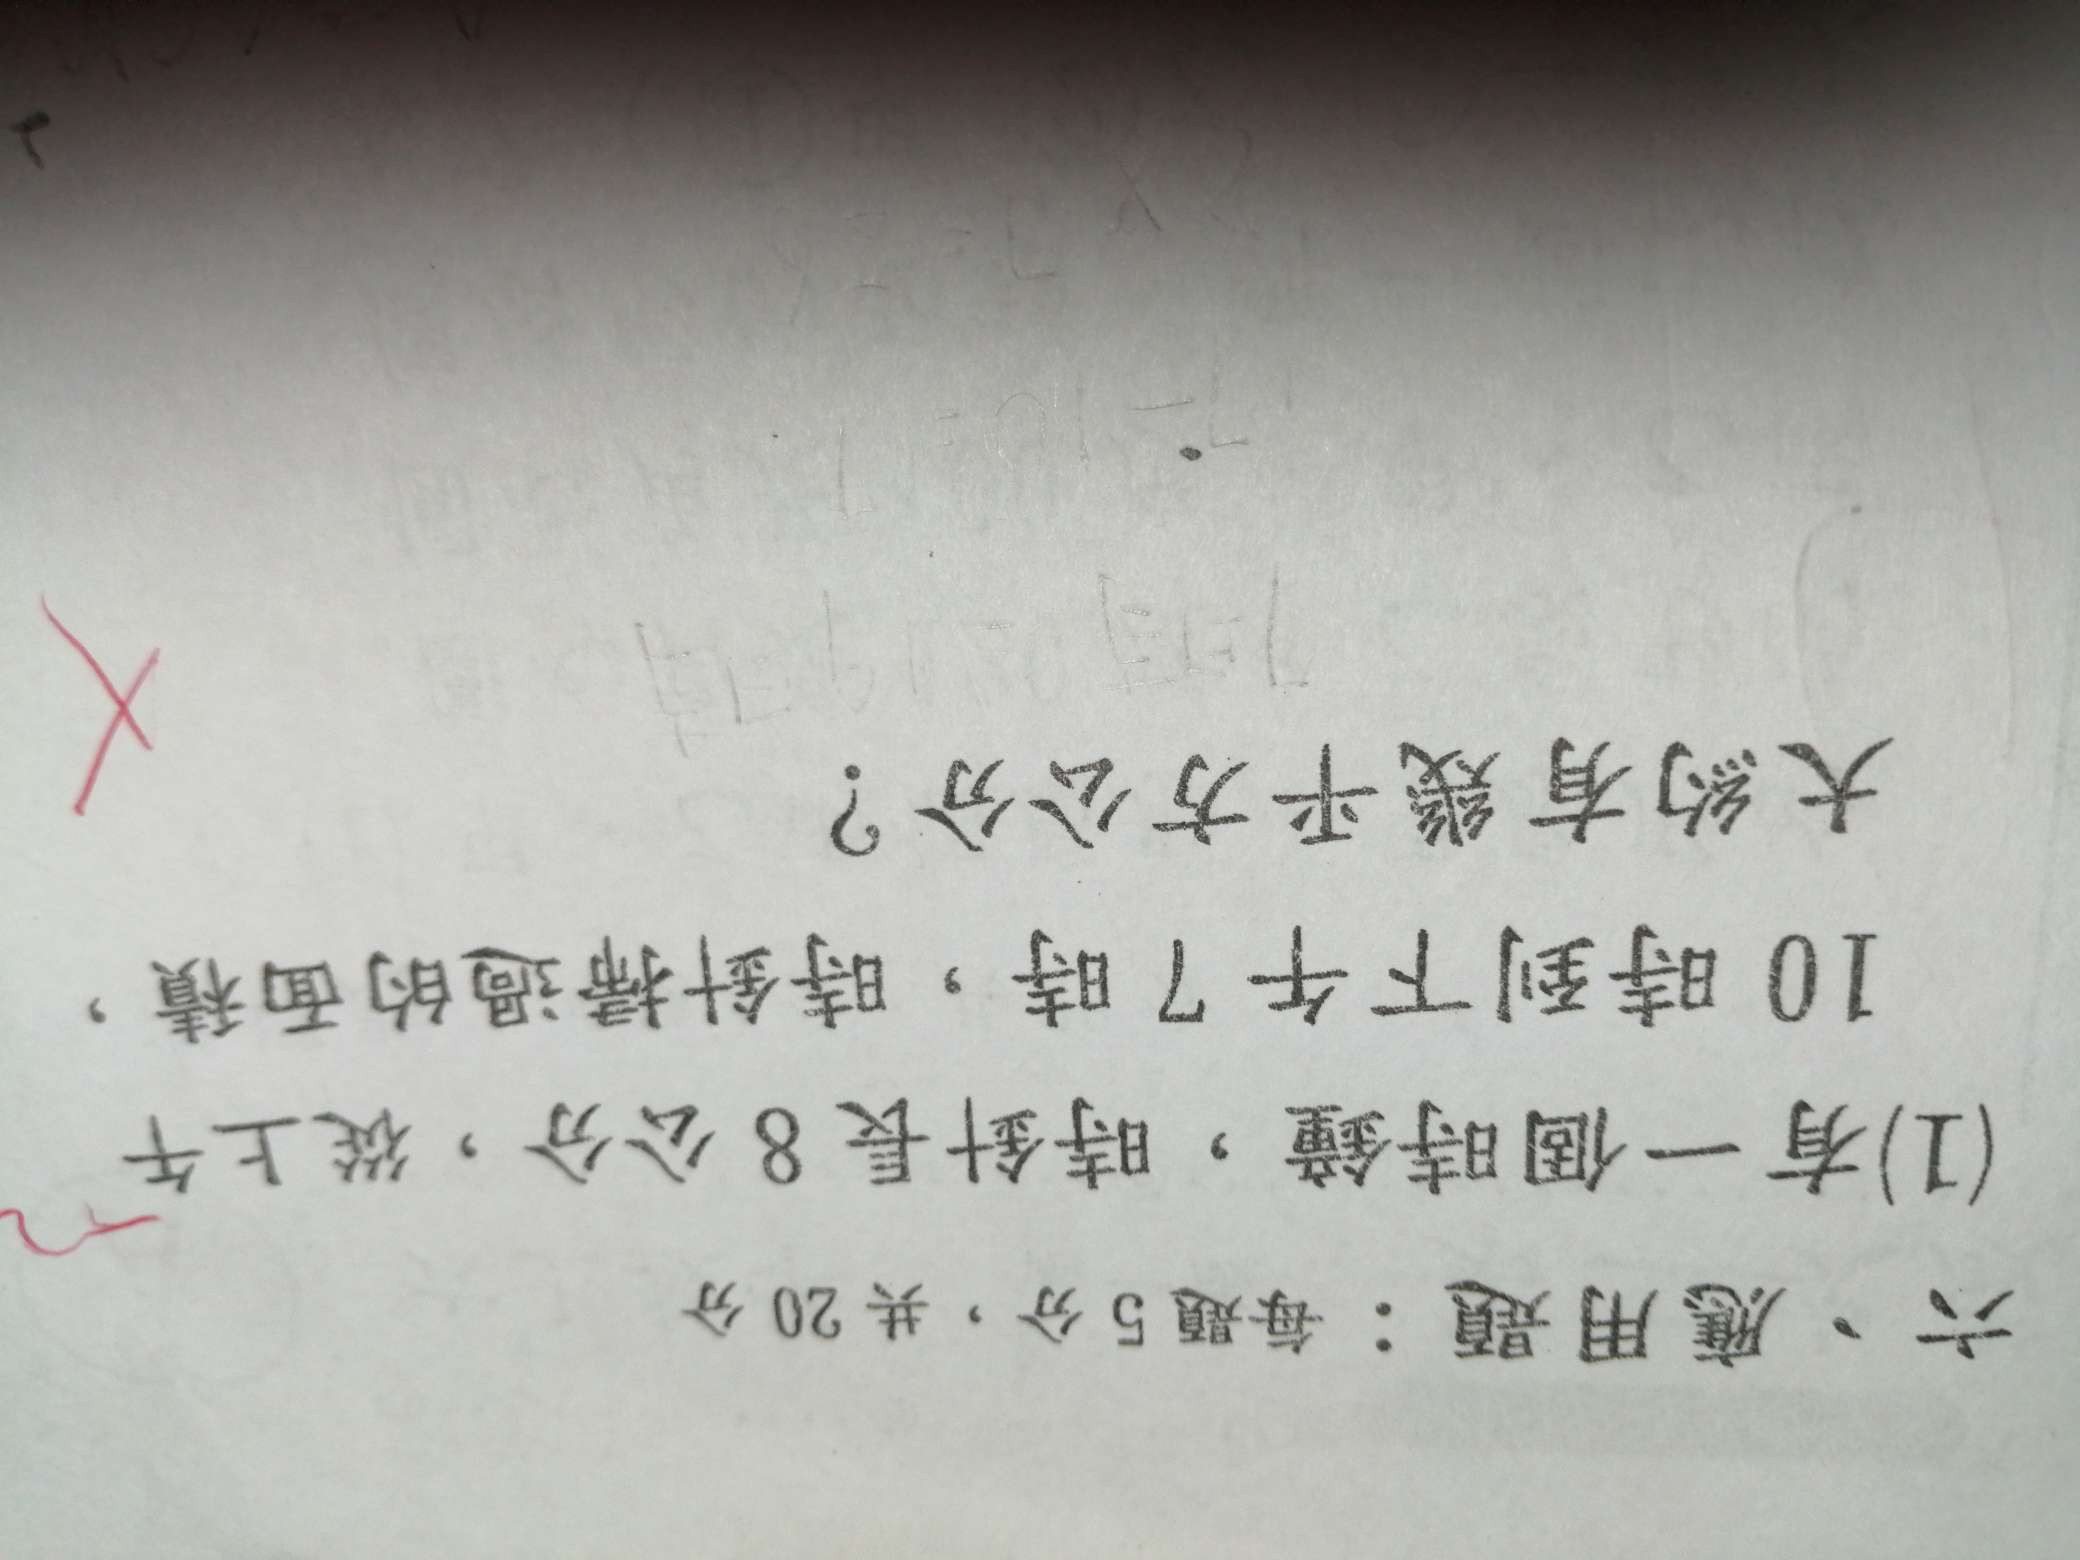 六、應用題：每題5分，共20分
(1)有一個時鐘，時針長8公分，從上午
10時到下午7時，時針掃過的面積，
大約有幾平方公分？